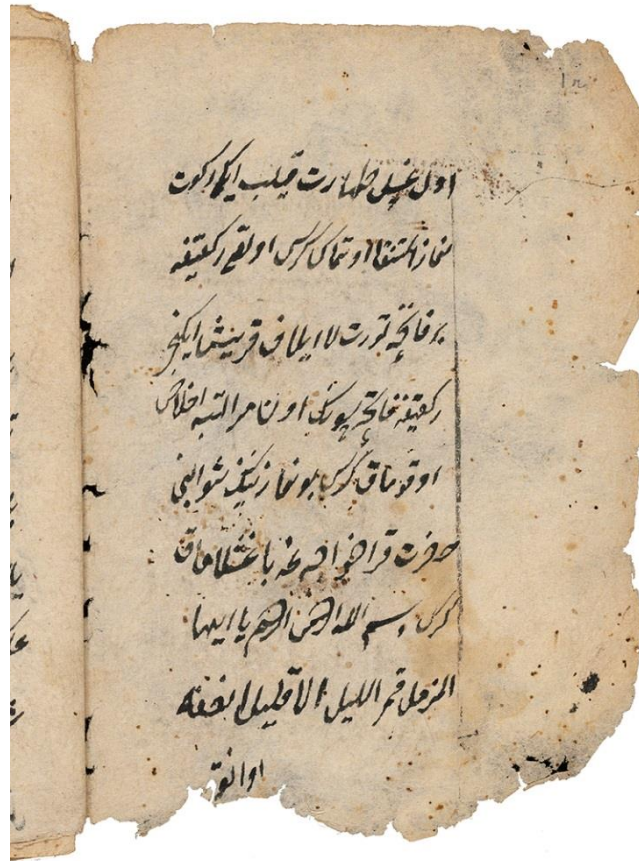 اول غسل طهارت قیلیب ایکی رکوت
نماز اوتماکی کرک اولقی رکعتیغه
بر فاتحه تورت لا ایلاف قریش ایکنجی
رکعتیغه فاتحه اون مراتبه اخلاص
اوقوماق کرک بو نمازنینک ثوابنی
حضرت قراخواجه غه باغشلاماق
کرک بسم الله الرحمن الرحیم یا ایها
المزمل قم اللیل الا قلیلا نصفه
اوانق